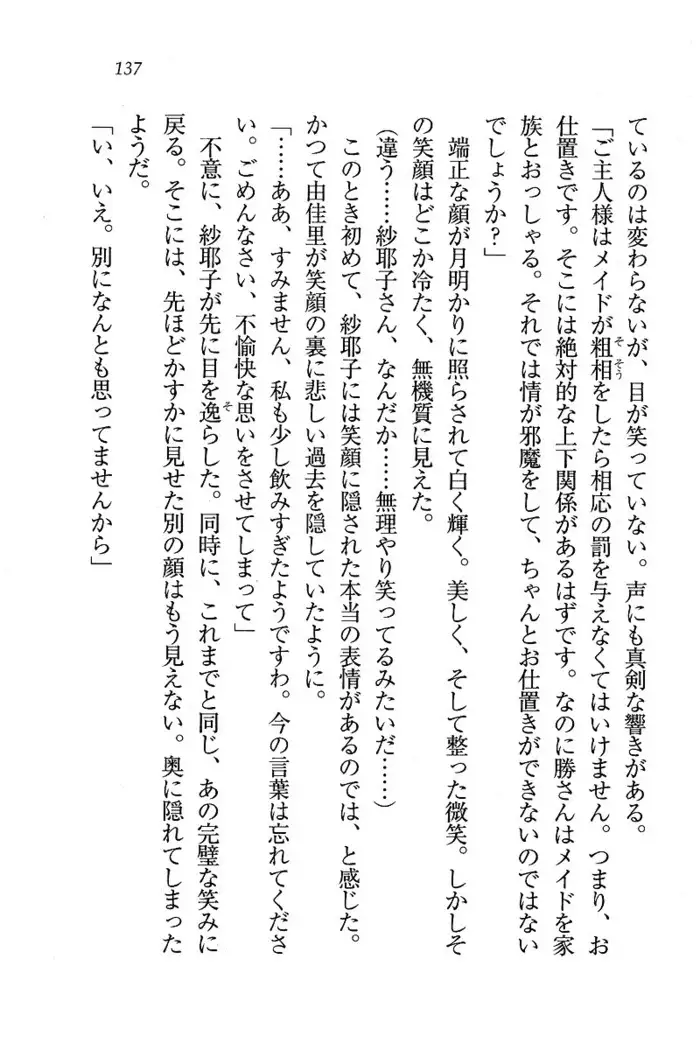 137
ているのは変わらないが、目が笑っていない。声にも真剣な響きがある。
「ご主人様はメイドが粗相をしたら相応の罰を与えなくてはいけません。つまり、お
仕置きです。そこには絶対的な上下関係があるはずです。なのに勝さんはメイドを家
族とおっしゃる。それでは情が邪魔をして、ちゃんとお仕置きができないのではない
でしょうか?」
端正な顔が月明かりに照らされて白く輝く。美しく、そして整った微笑。しかしそ
の笑顔はどこか冷たく、無機質に見えた。
(違う……紗耶子さん、なんだか……無理やり笑ってるみたいだ……)
このとき初めて、紗耶子には笑顔に隠された本当の表情があるのでは、と感じた。
かつて由佳里が笑顔の裏に悲しい過去を隠していたように。
「……ああ、すみません、私も少し飲みすぎたようですわ。今の言葉は忘れてくださ
い。ごめんなさい、不愉快な思いをさせてしまって」
不意に、紗耶子が先に目を逸らした。同時に、これまでと同じ、あの完璧な笑みに
戻る。そこには、先ほどかすかに見せた別の顔はもう見えない。奥に隠れてしまった
ようだ。
「い、いえ。別になんとも思ってませんから」
そそう
そ